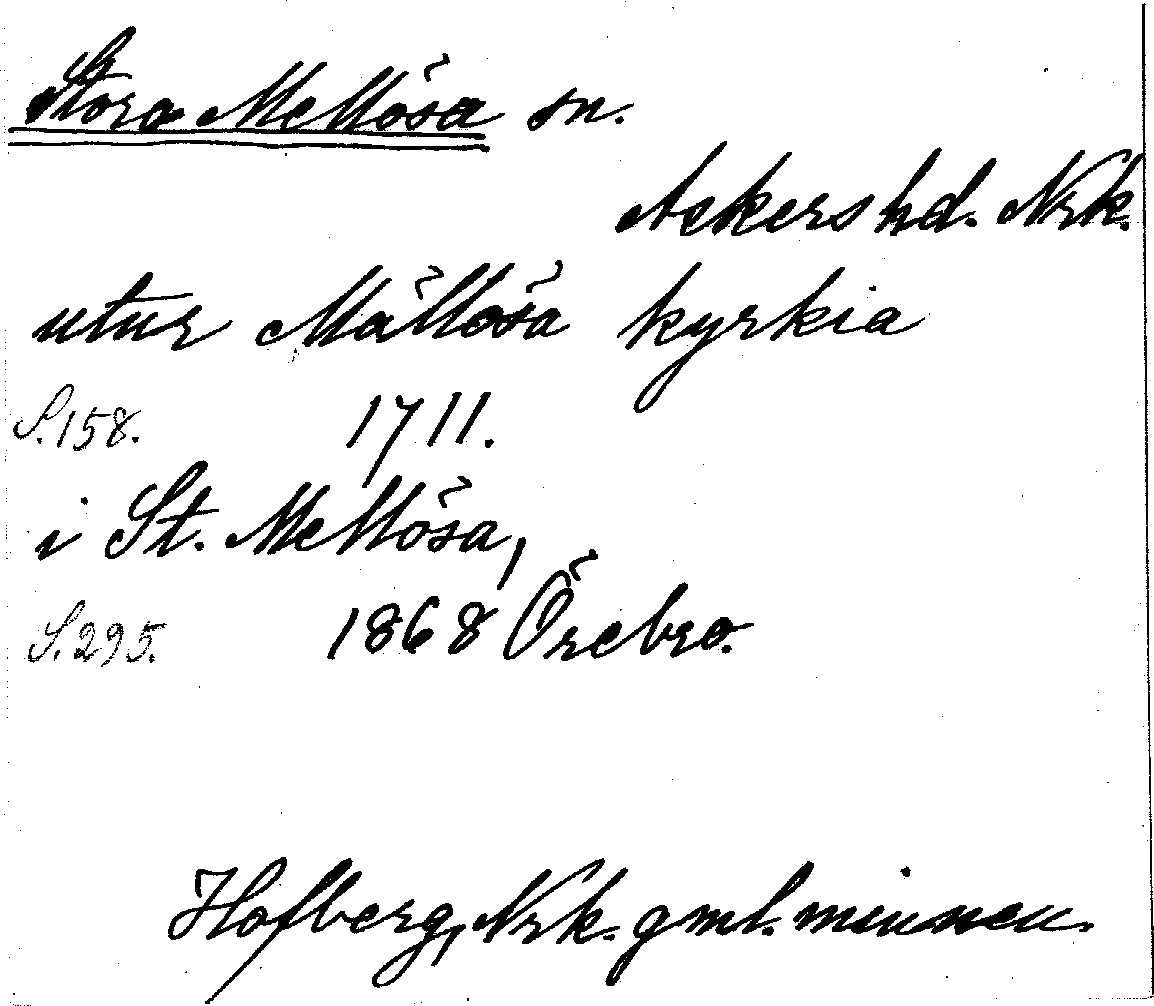 Stora Mellösa sn.
Askers hd. Nrk.
utur Mällösa kyrkia
S.158. 1711.
i St. Mellösa,
S.295. 1868 Örebro.
Hofberg, Nrk. gml. minnen.